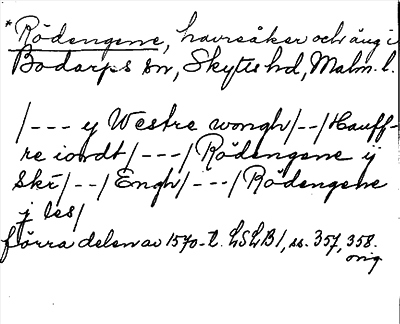 *Rödengene, havresåker och äng i
Bodarps sn, Skytts hd, Malm. l.
/--- y Westre wongh/--/Hauff-
re iordt/---/Rödengene ij
Skr/--/Engh/---/Rödengene
j les/
förra delen av 1570-t. LSLB1, ss. 357, 358.
orig